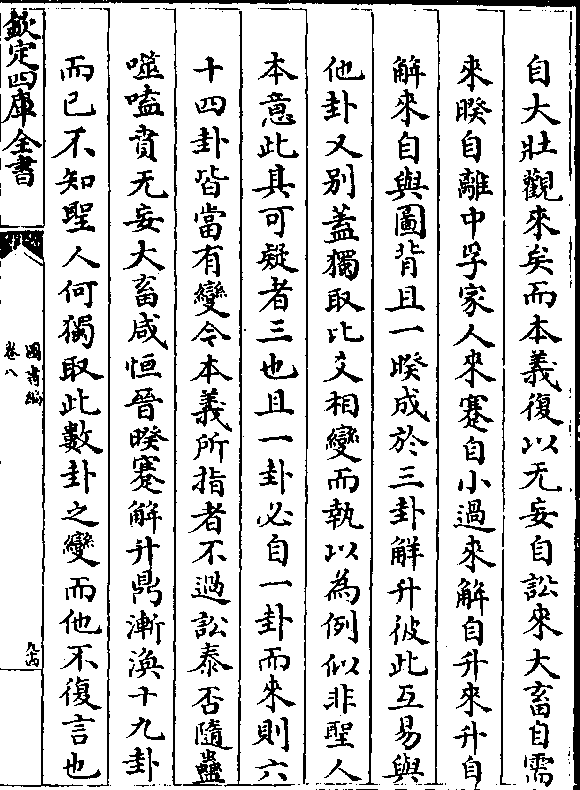 自大壯觀來矣而本義復以无妄自訟來大畜自需
來睽自離中孚家人來蹇自小過來解自升來升自
解來自與圖背且一睽成於三卦解升彼此互易與
他卦又別蓋獨取比爻相變而執以為例似非聖人
本意此具可疑者三也且一卦必自一卦而來則六
十四卦皆當有變今本義所指者不過訟泰否隨蠱
噬嗑賁无妄大畜咸恒晉睽蹇解升鼎漸渙十九卦
而已不知聖人何獨取此數卦之變而他不復言也
欽定四庫全書
圖書編
卷八